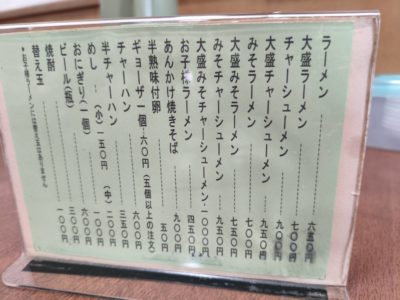 ラーメン……六五〇円
大盛ラーメン……七〇〇円
チャーシューメン……九〇〇円
大盛チャーシューメン……九五〇円
みそラーメン……七〇〇円
大盛みそラーメン……七五〇円
みそチャーシューメン……九五〇円
大盛みそチャーシューメン・一〇〇〇円
お子様ラーメン……四五〇円
あんかけ焼きそば……九〇〇円
半熟味付卵……五〇円
ギョーザ一個・六〇円(五個以上の注文)
チャーハン……六〇〇円
半チャーハン……三五〇円
めし…(小)一五〇円 (中)二〇〇円
おにぎり(一個)……一〇〇円
ビール(瓶)……六〇〇円
焼酎……三〇〇円
替え玉……一〇〇円
*お子様ラーメンには替え玉はありません